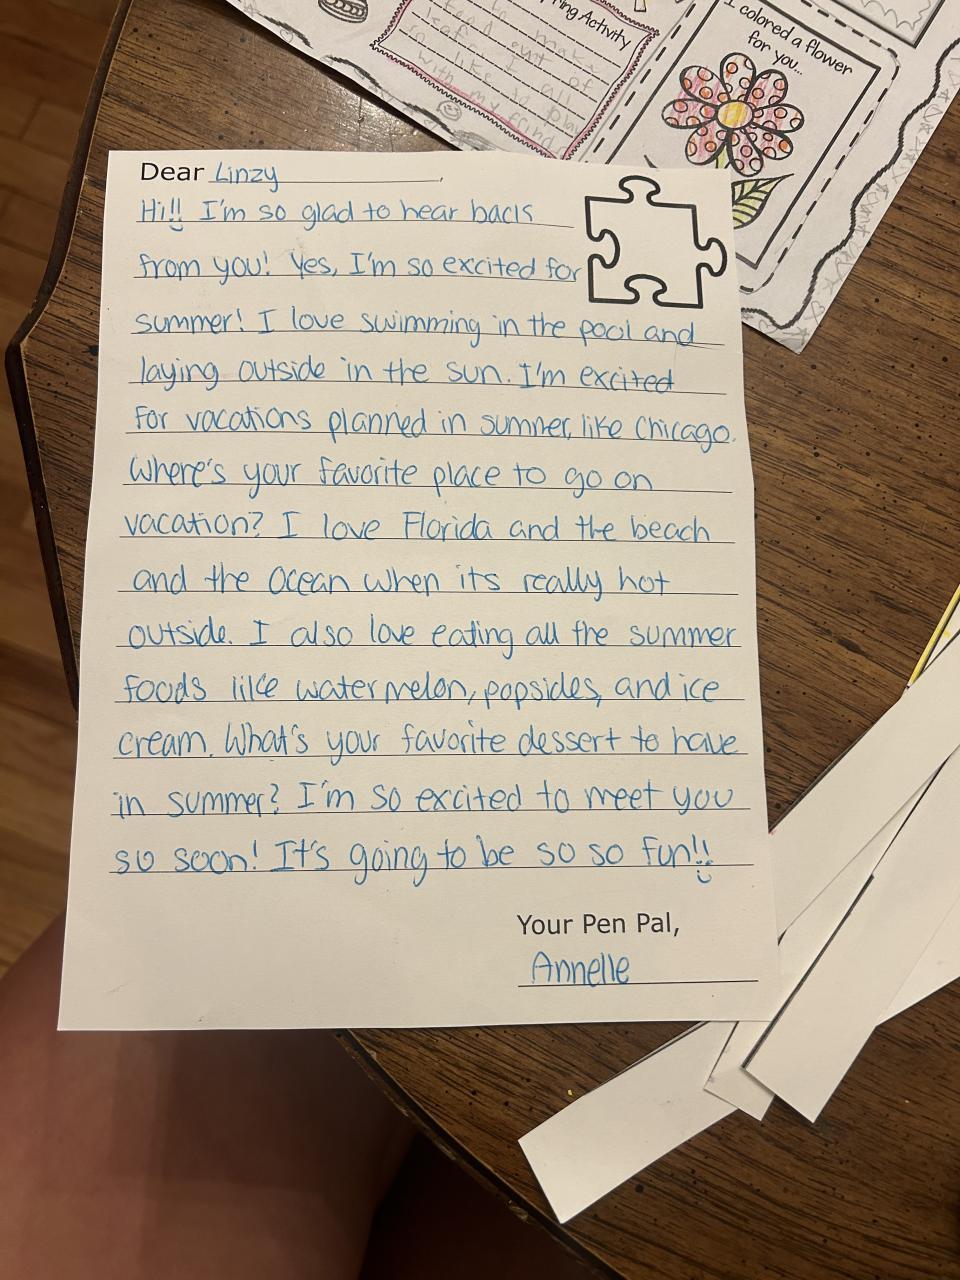 ring Activity
I colored a flower
for you...
make
out of
like
all
to play
with my friends
Dear Linzy,
Hi!! I'm so glad to hear back
from you! Yes, I'm so excited for
summer! I love swimming in the pool and
laying outside in the sun. I'm excited
for vacations planned in summer, like Chicago.
Where's your favorite place to go on
vacation? I love Florida and the beach
and the ocean when its really hot
outside. I also love eating all the summer
foods like watermelon, popsicles, and ice
cream. What's your favorite dessert to have
in summer? I'm so excited to meet you
so soon! It's going to be so so fun!!
Your Pen Pal,
Annelle